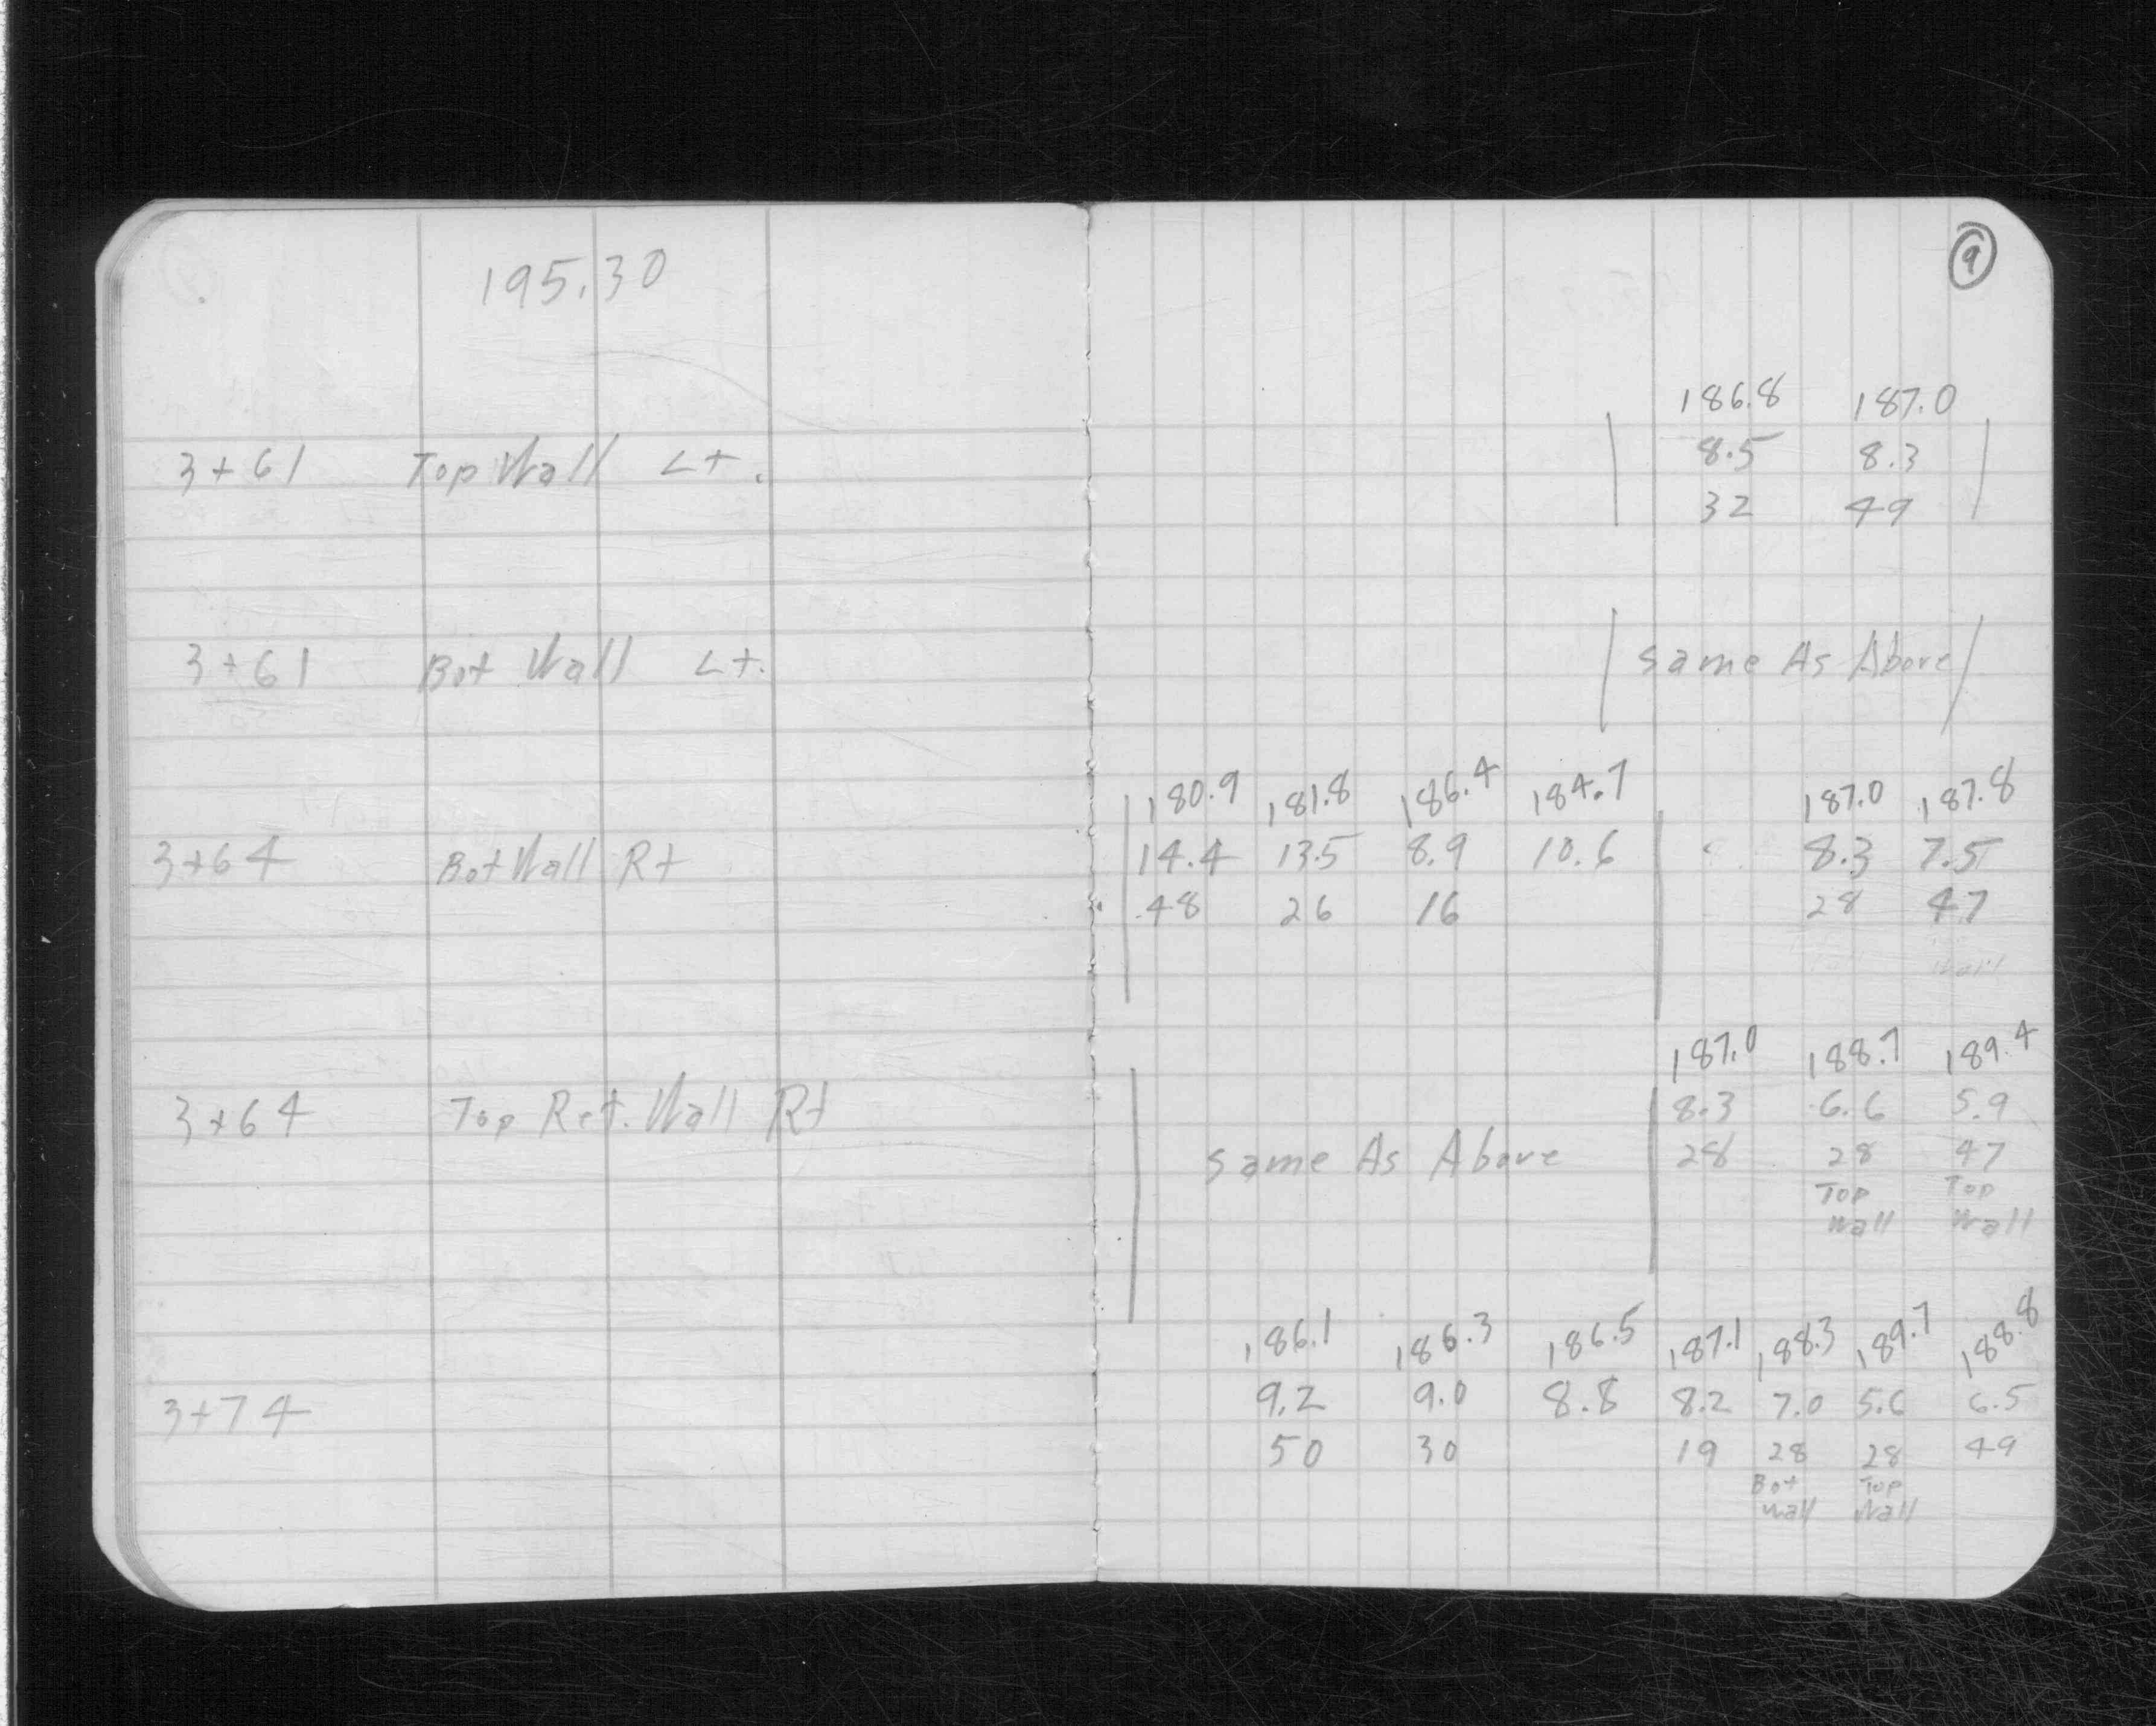 195.30
9
186.8 187.0
3+61 Top Wall Lt. 8.5 8.3
32 49
3+61 Bot Wall Lt. Same As Above
180.9 181.8 186.4 184.7 187.0 187.8
3+64 Bot Wall Rt 14.4 13.5 8.9 10.6 8.3 7.5
48 26 16 28 47
Wall
187.0 188.7 189.4
3+64 Top Ret. Wall Rt 8.3 6.6 5.9
Same As Above 28 28 47
Top Top
Wall Wall
186.1 186.3 186.5 187.1 188.3 189.7 188.8
3+74 9.2 9.0 8.8 8.2 7.0 5.6 6.5
50 30 19 28 28 49
Bot Top
Wall Wall